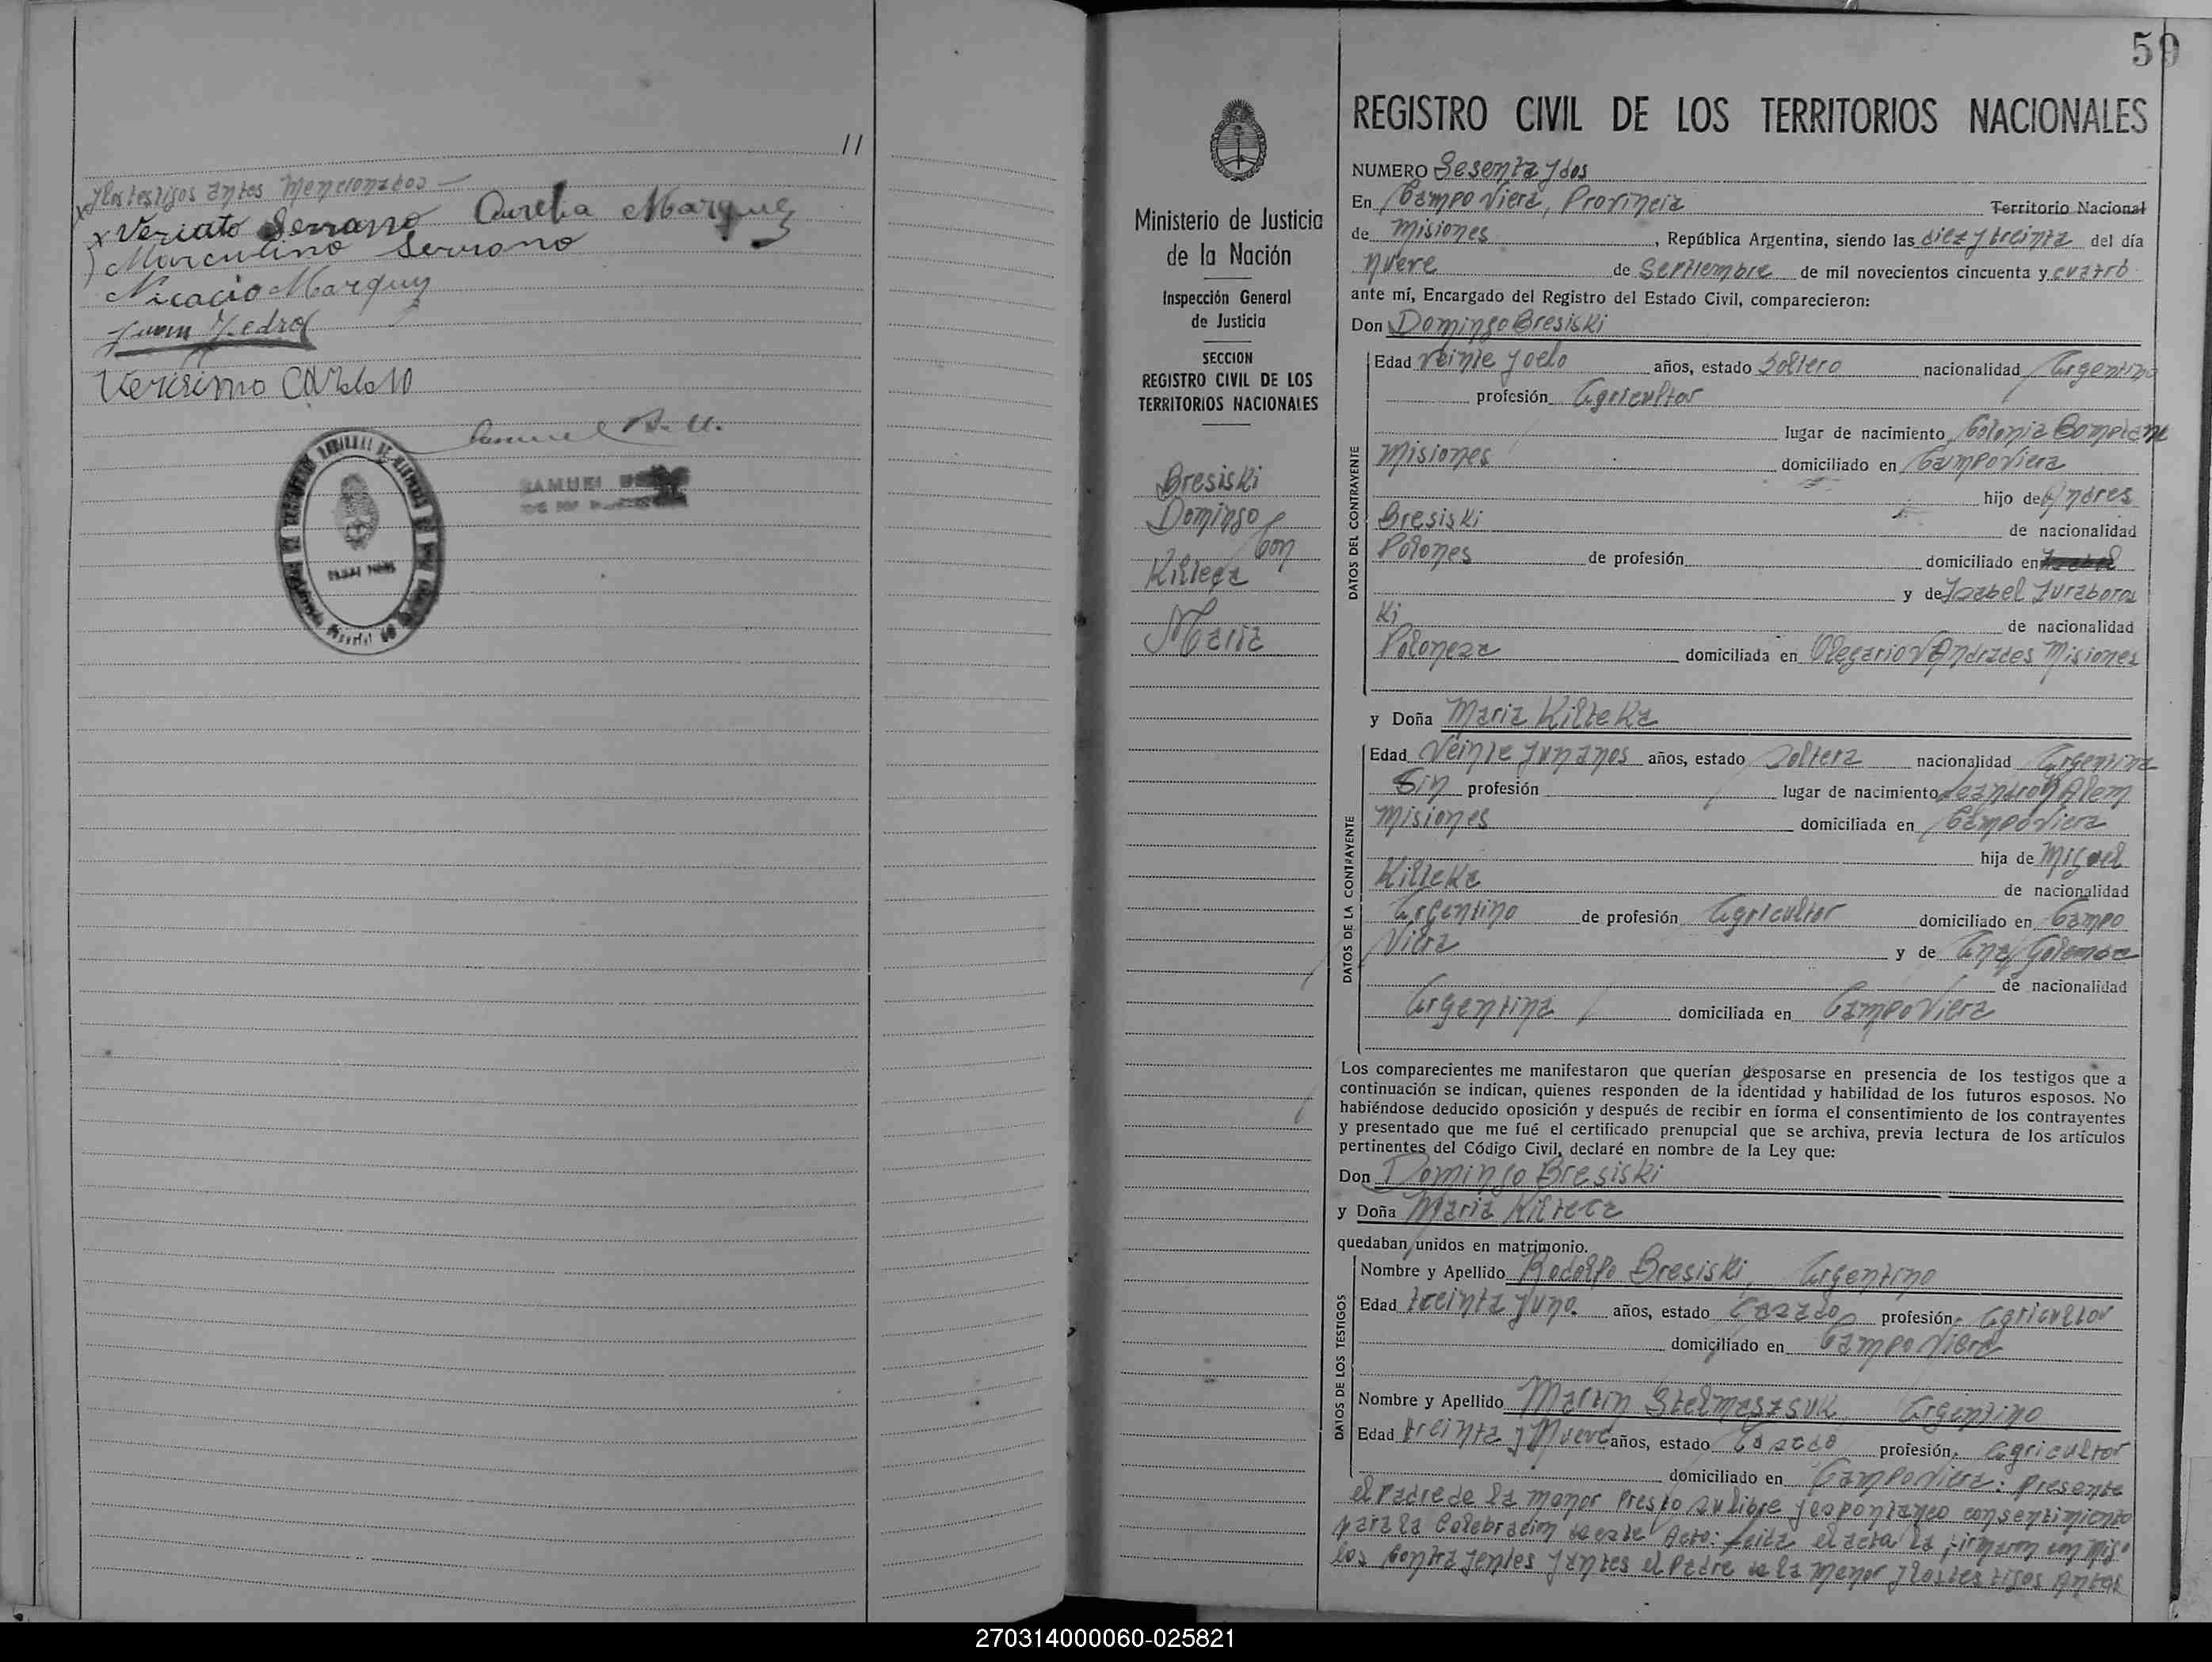 11
y los testigos antes mencionados
x Veriato Serrano Aurelia Marquez
Marculino Serrano
Nicacio Marquez
Juan Pedro
Verisimo Cardozo
Samuel
SAMUEL
59
REGISTRO CIVIL DE LOS TERRITORIOS NACIONALES
Ministerio de Justicia
de la Nación
Inspección General
de Justicia
SECCION
REGISTRO CIVIL DE LOS
TERRITORIOS NACIONALES
Bresiski
Domingo
Con
Kilteca
Maria
NUMERO Sesenta y dos
En Campo Viera, Provincia Territorio Nacional
de Misiones, República Argentina, siendo las diez y treinta del día
nueve de Septiembre de mil novecientos cincuenta y cuatro
ante mí, Encargado del Registro del Estado Civil, comparecieron:
Don Domingo Bresiski
DATOS DEL CONTRAYENTE
Edad veinte y ocho años, estado Soltero nacionalidad Argentino
profesión Agricultor
lugar de nacimiento Colonia
Misiones domiciliado en Campo Viera
hijo de Andres
Bresiski de nacionalidad
Polones de profesión domiciliado en
y de Isabel Juraboros
ki de nacionalidad
Poloneza domiciliada en Olegario V Andrades Misiones
y Doña Maria Kilteka
DATOS DE LA CONTRAYENTE
Edad Veinte y un anos años, estado Soltera nacionalidad Argentina
Sin profesión lugar de nacimiento Leandro N Alem
Misiones domiciliada en Campo Viera
hija de Miguel
Kilteka de nacionalidad
Argentino de profesión Agricultor domiciliado en Campo
Viera y de Ana Golemba
de nacionalidad
Argentina domiciliada en Campo Viera
Los comparecientes me manifestaron que querían desposarse en presencia de los testigos que a
continuación se indican, quienes responden de la identidad y habilidad de los futuros esposos. No
habiéndose deducido oposición y después de recibir en forma el consentimiento de los contrayentes
y presentado que me fué el certificado prenupcial que se archiva, previa lectura de los artículos
pertinentes del Código Civil, declaré en nombre de la Ley que:
Don Domingo Bresiski
y Doña Maria Kilteca
quedaban unidos en matrimonio.
DATOS DE LOS TESTIGOS
Nombre y Apellido Rodolfo Bresiski, Argentino
Edad treinta y uno. años, estado Casado profesión Agricultor
domiciliado en Campo Viera
Nombre y Apellido Martin Stelmaszsuk Argentino
Edad treinta y Nueve años, estado Casado profesión Agricultor
domiciliado en Campo Viera: Presente
el Padre de la menor Presto su libre y espontaneo consentimiento
para la Celebracion de este Acto: leida el acta la firmaron con migo
los Contrayentes y antes el Padre de la menor y los testigos Antes
270314000060-025821